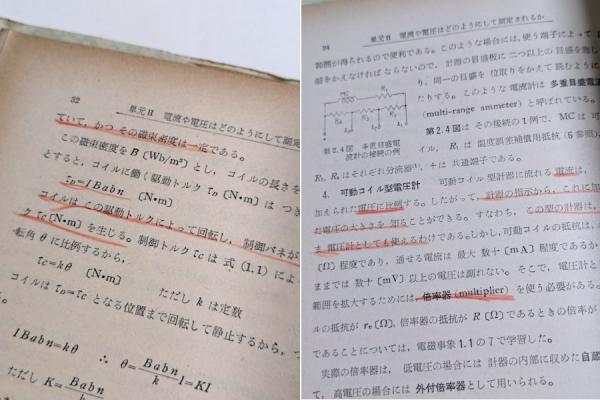 32
単元II 電流や電圧はどのようにして測定
ていて、かつ その磁束密度は一定である。
この磁束密度を B〔Wb/m²〕とし、コイルの長さを
とすると、コイルに働く駆動トルク τD〔N•m〕は つき
τD=IBabn 〔N•m〕
コイルは この駆動トルクによって回転し、制御バネが
ク τC〔N•m〕を生じる。制御トルク τC は 式(1.1)によ
転角 θ に比例するから、
τC=kθ 〔N•m〕 ただし k は定数
る。
コイルは τD=τC となる位置まで回転して静止するから、つ
IBabn=kθ ∴ θ=Babn/k I=KI
ただし K=Babn/k
94
単元II 電流や電圧はどのようにして測定されるか
範囲が得られるので便利である。このような場合には、使う端子によって
盛をかえなければ ならないので、計器の目盛板に 二つ以上の目盛を施し
り、同一の目盛を 位取りをかえて 読むように
たりする。このような 電流計は 多重目盛電
(multi-range ammeter) と呼ばれている。
第2.4図は その接続の1例で、MC は可
イル、R₁ は 温度誤差補償用抵抗(6 参照)、
MC
第2.4図 多重目盛電
流計の接続の例
R₂, R₃ はそれぞれ分流器、＋は 共通端子である。
4. 可動コイル型電圧計 可動コイル型計器に流れる 電流は、
加えられた 電圧に比例する。したがって、計器の指示から、これに加
た電圧の大きさを 知る ことができる。すなわち、この型の計器は、
ま 電圧計としても使えるわけである。しかし、可動コイルの抵抗は、
〔Ω〕程度であり、通せる電流は 最大 数十〔mA〕程度であるか
ままでは 数十〔mV〕以上の電圧は 測れない。そこで、電圧計と
範囲を拡大するためには、倍率器 (multiplier) を使う必要がある。
ルの抵抗が r₀〔Ω〕、倍率器の抵抗が R〔Ω〕であるときの倍率が
であることについては、電磁事象 1.1 の 7 で学習した。
実際の倍率器は、低電圧の場合には 計器の内部に収めた 自蔵
て、高電圧の場合には 外付倍率器として 用いられる。